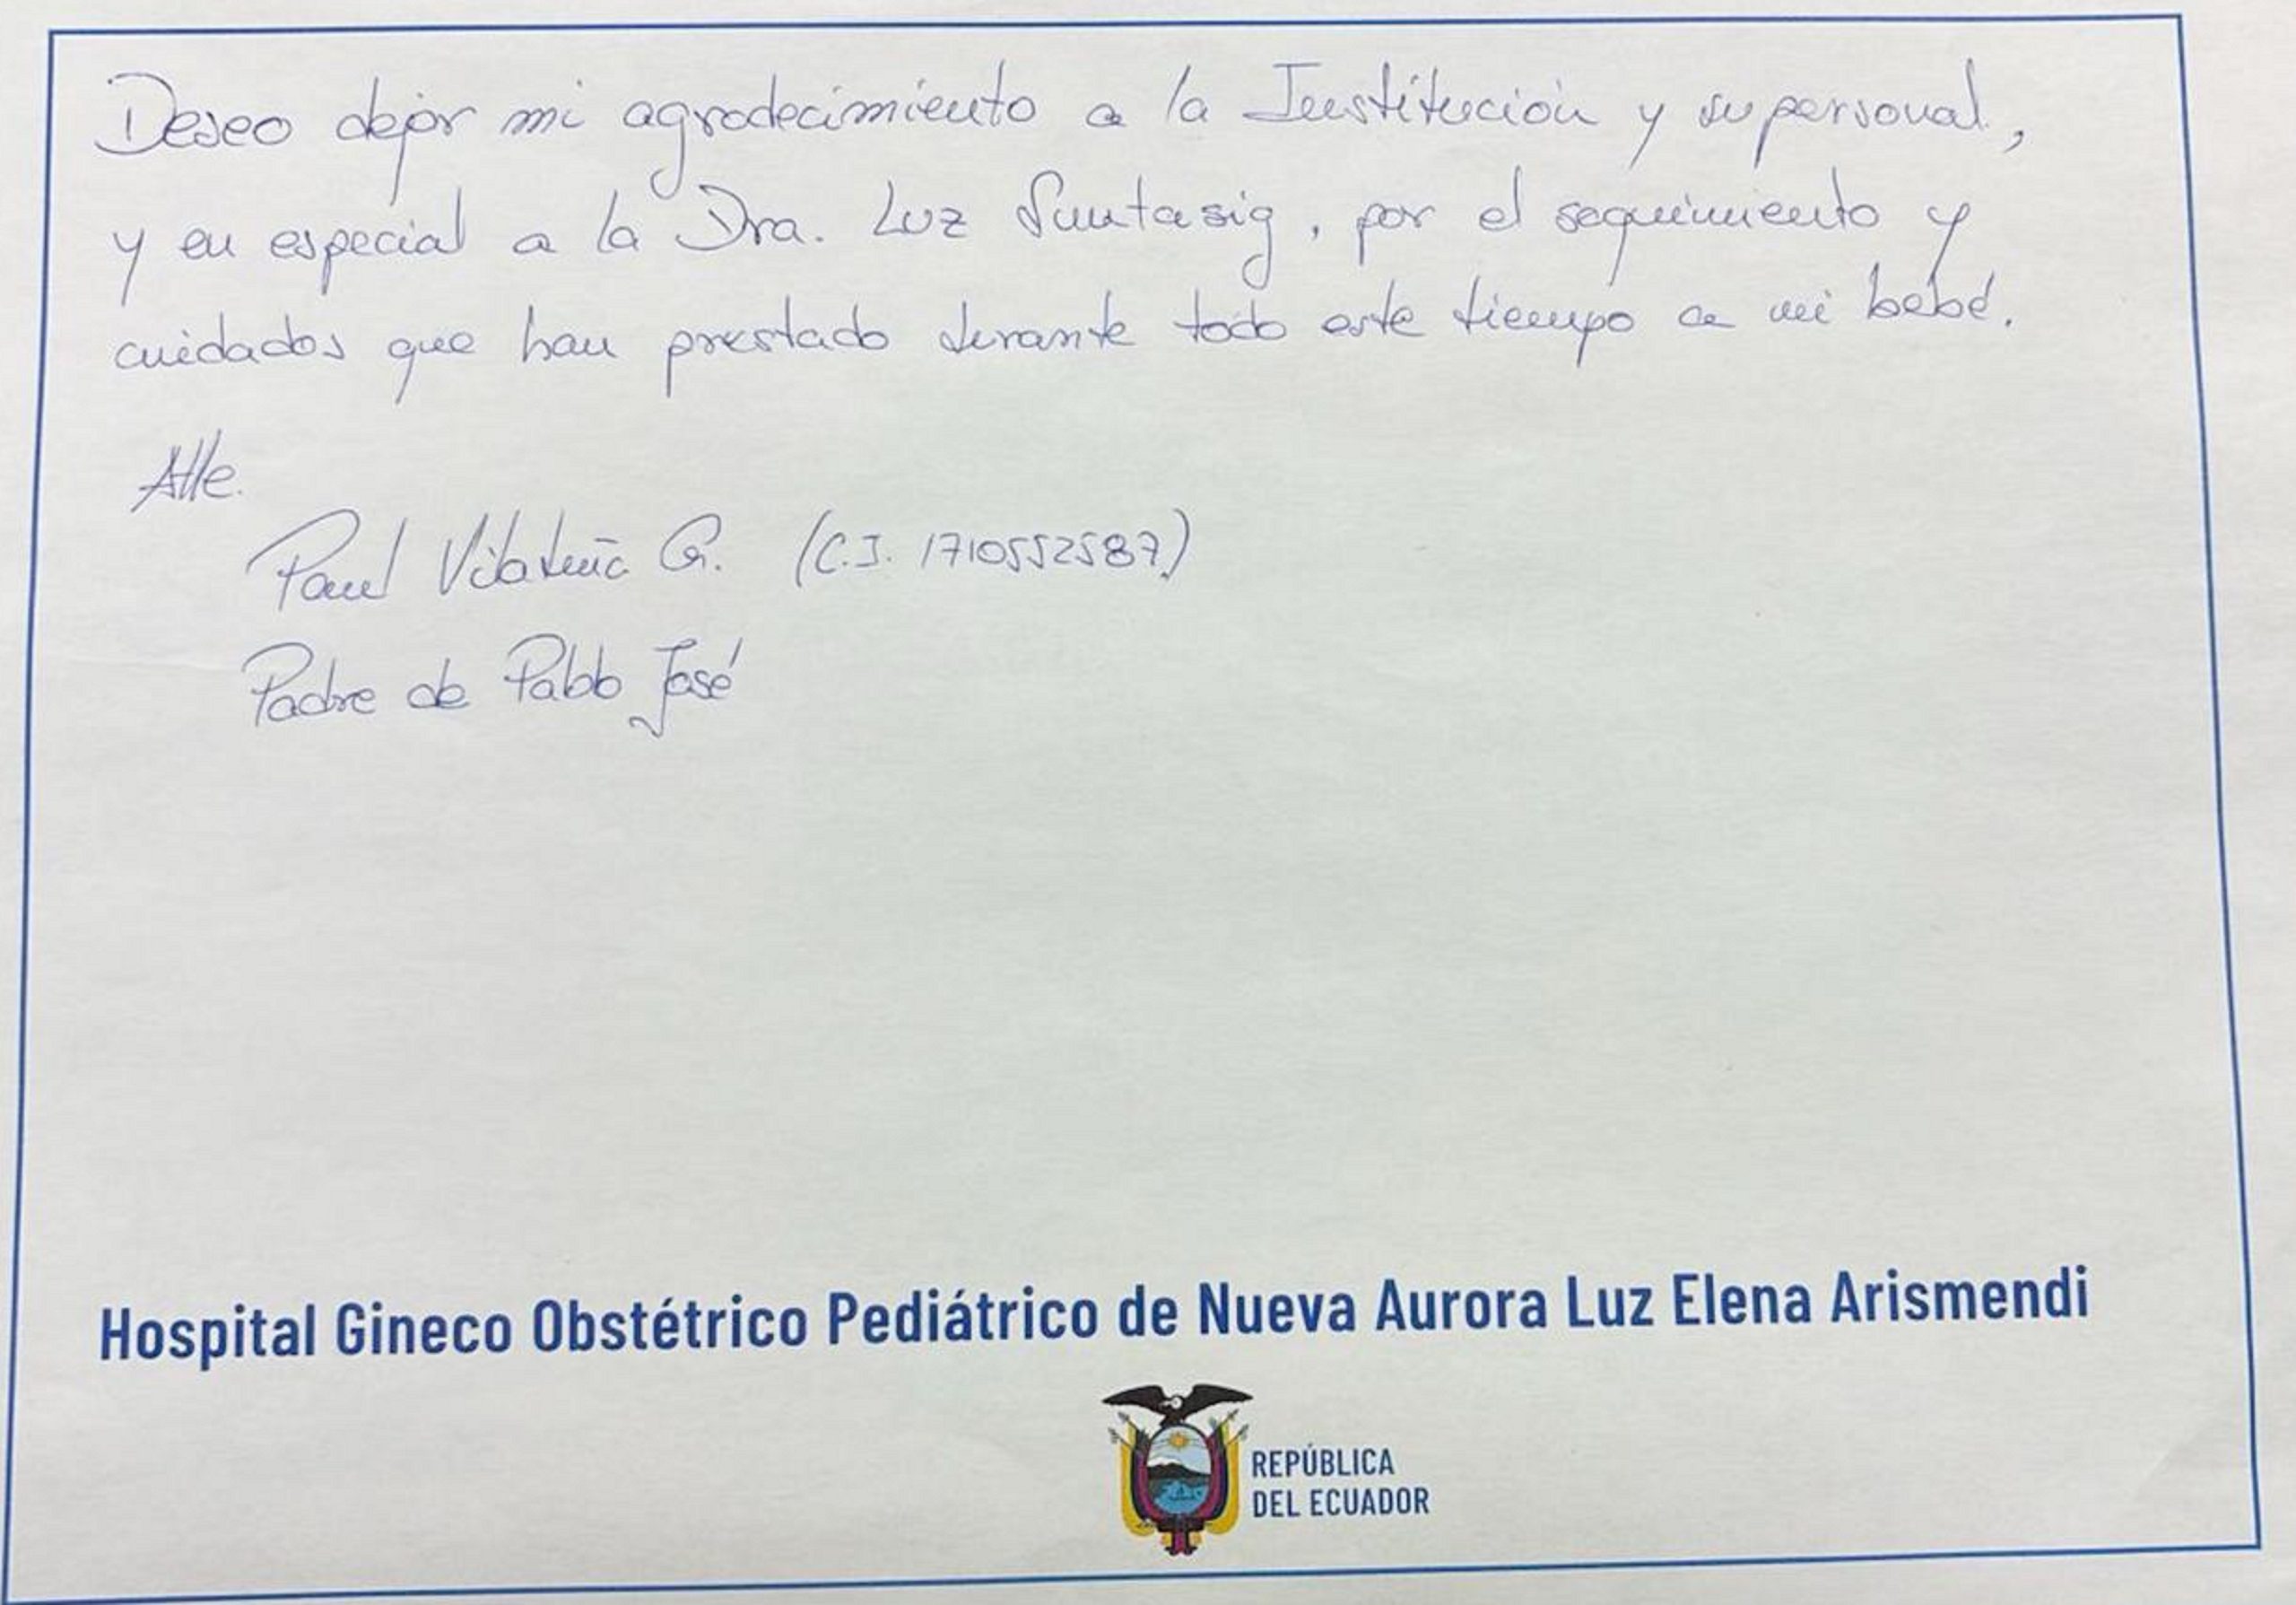 Deseo dejar mi agradecimiento a la Institución y su personal,
y en especial a la Dra. Luz Suntasig, por el seguimiento y
cuidados que han prestado durante todo este tiempo a mi bebé.
Atte.
Paul Vilatuña G. (C.I. 1710552587)
Padre de Pablo José
Hospital Gineco Obstétrico Pediátrico de Nueva Aurora Luz Elena Arismendi
REPÚBLICA
DEL ECUADOR